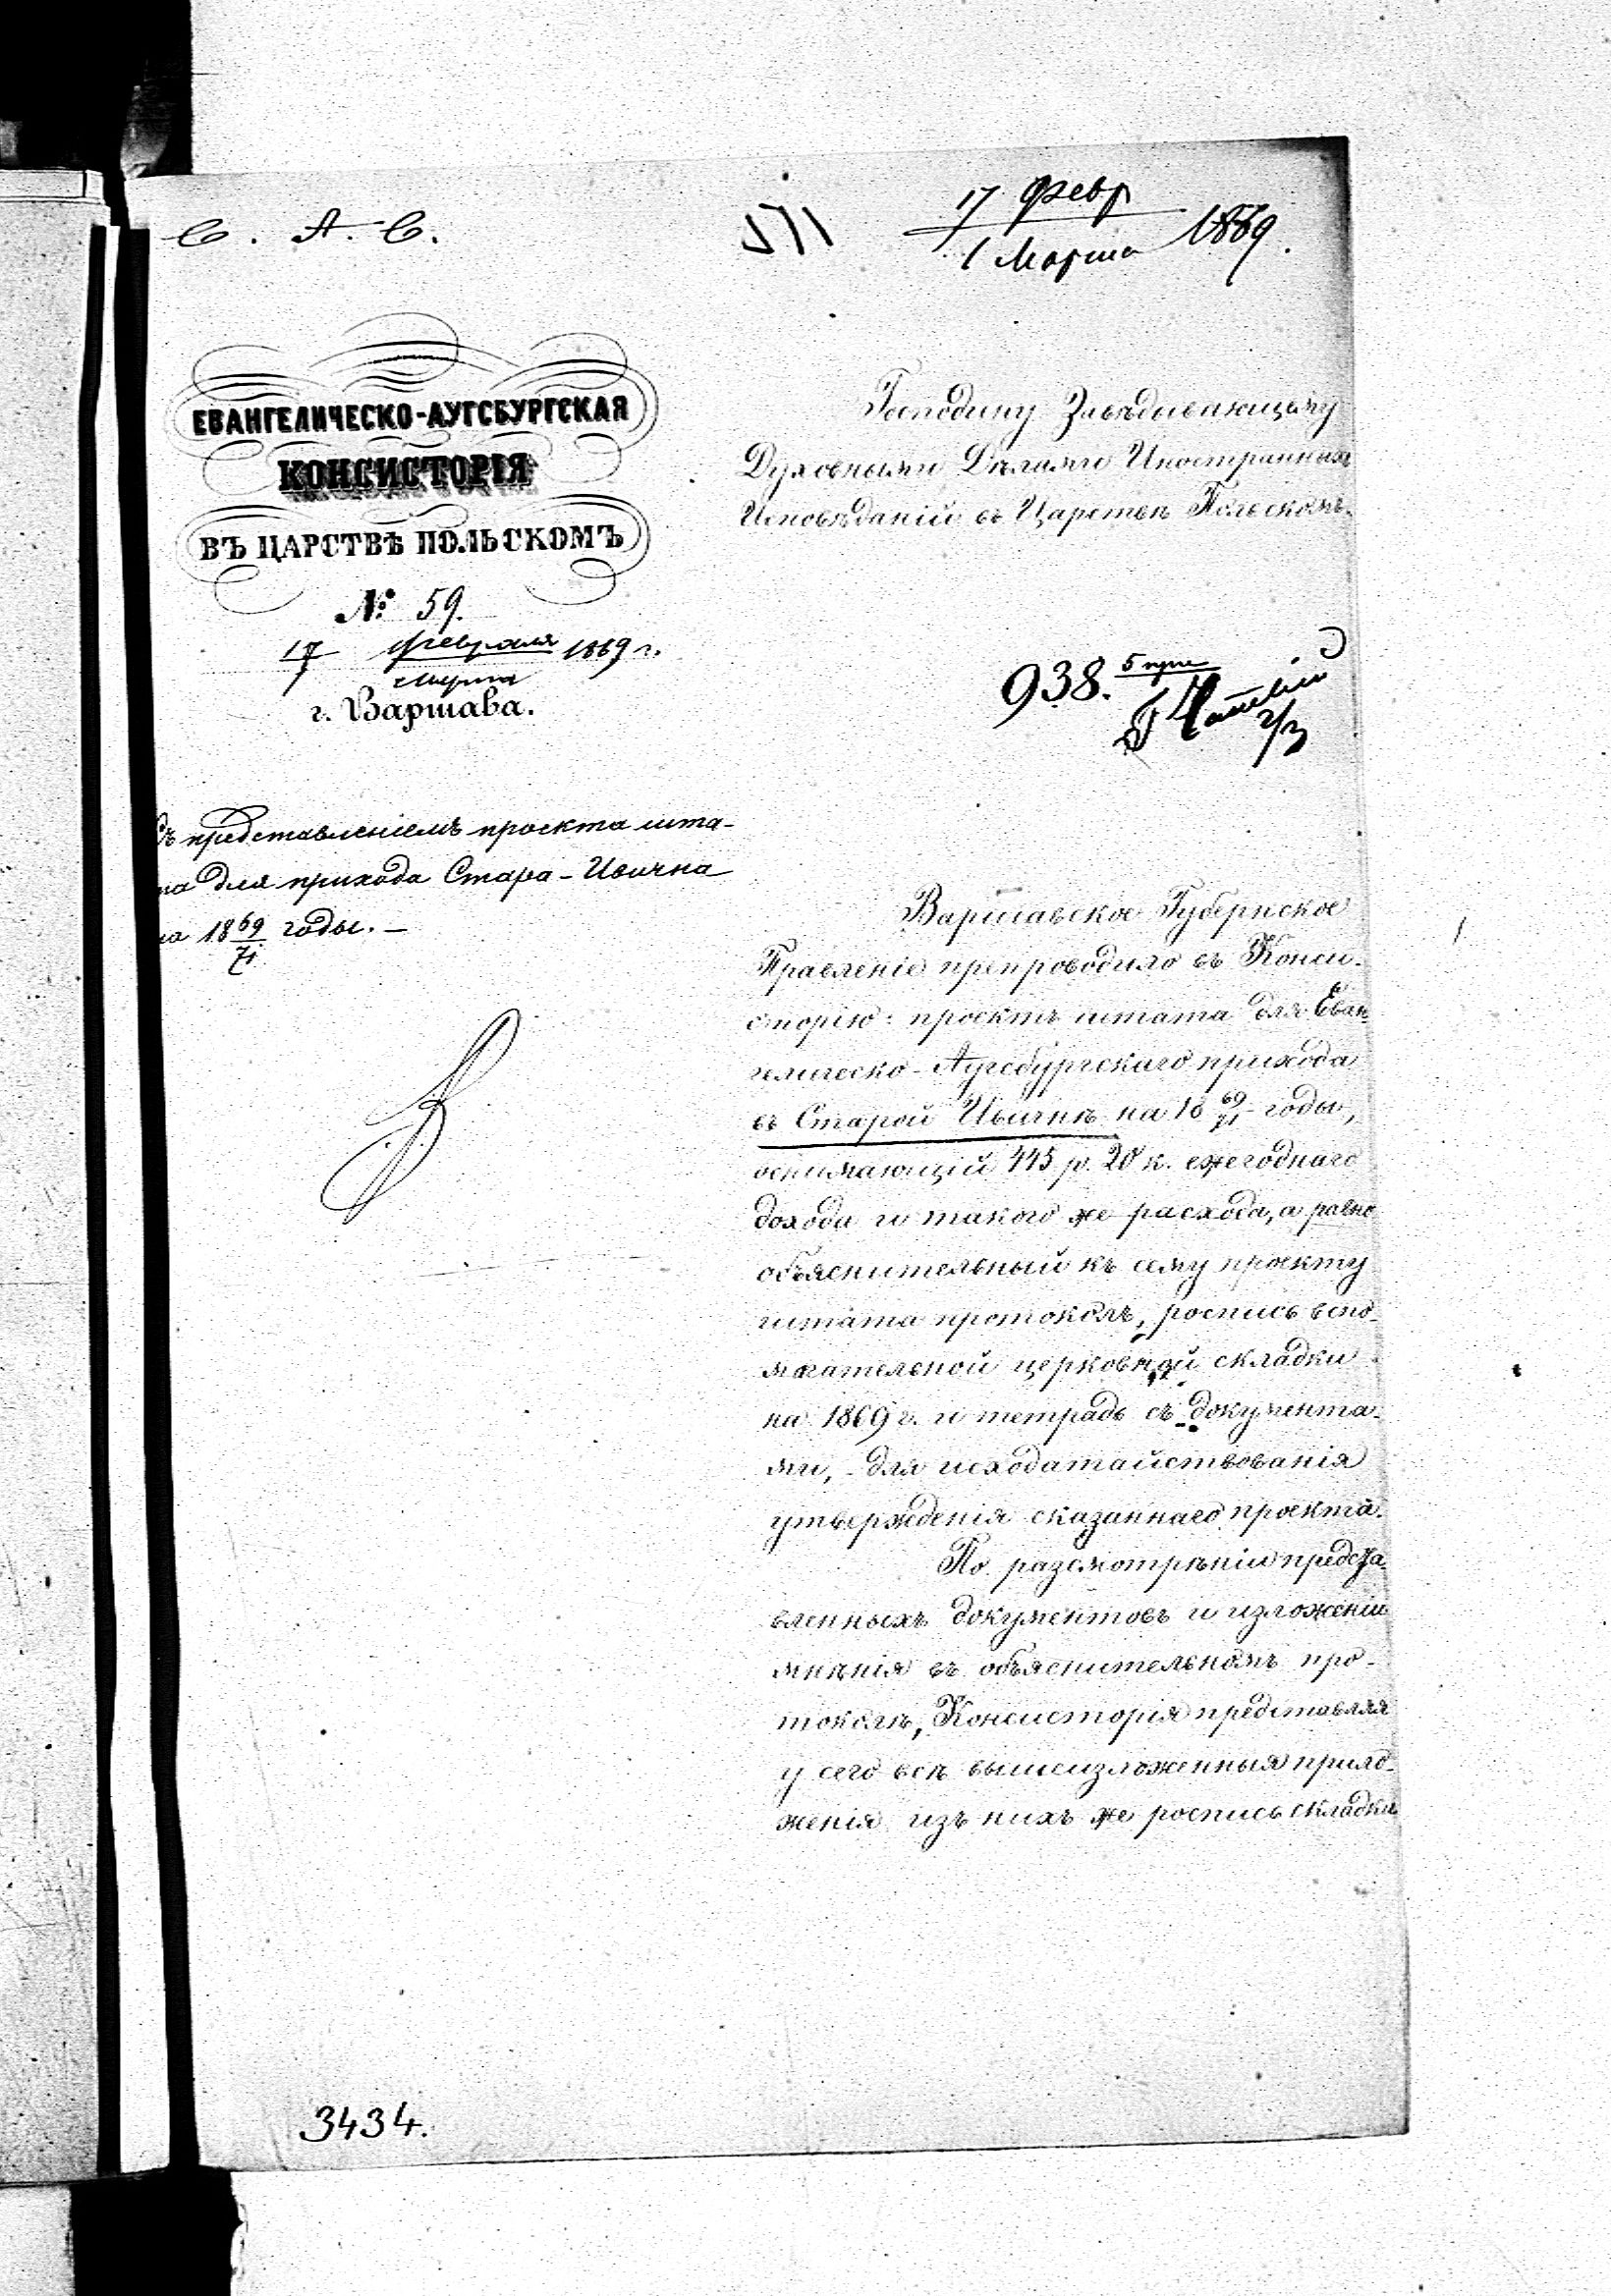 С. А. С.
17 февр
1 Марта 1869.
ЕВАНГЕЛИЧЕСКО-АУГСБУРГСКАЯ
КОНСИСТОРІЯ
ВЪ ЦАРСТВѢ ПОЛЬСКОМЪ
№ 59.
17 февраля 1869 г.
1 марта
г. Варшава.
Съ представленіемъ проекта шта-
та для прихода Стара-Ивична
на 1869/71 годы. —
Господину Завѣдывающему
Духовными Дѣлами Иностранныхъ
Исповѣданій въ Царствѣ Польскомъ.
938.
2/3
Варшавское Губернское
Правленіе препроводило въ Конси-
сторію: проектъ штата для Еван-
гелическо-Аугсбургскаго прихода
въ Старой Ивичнѣ на 1869/71 годы,
обнимающій 445 р. 20 к. ежегоднаго
дохода и такого же расхода, а равно
объяснительный къ сему проекту
штата протоколъ, роспись вспо-
могательной церковной складки
на 1869 г. и тетрадь съ документа-
ми, - для исходатайствованія
утвержденія сказаннаго проекта.
По разсмотрѣніи предста-
вленныхъ документовъ и изложеніи
мнѣнія въ объяснительномъ про-
токолѣ, Консисторія представляя
у сего всѣ вышеизложенныя прило-
женія изъ нихъ же роспись складки
3434.